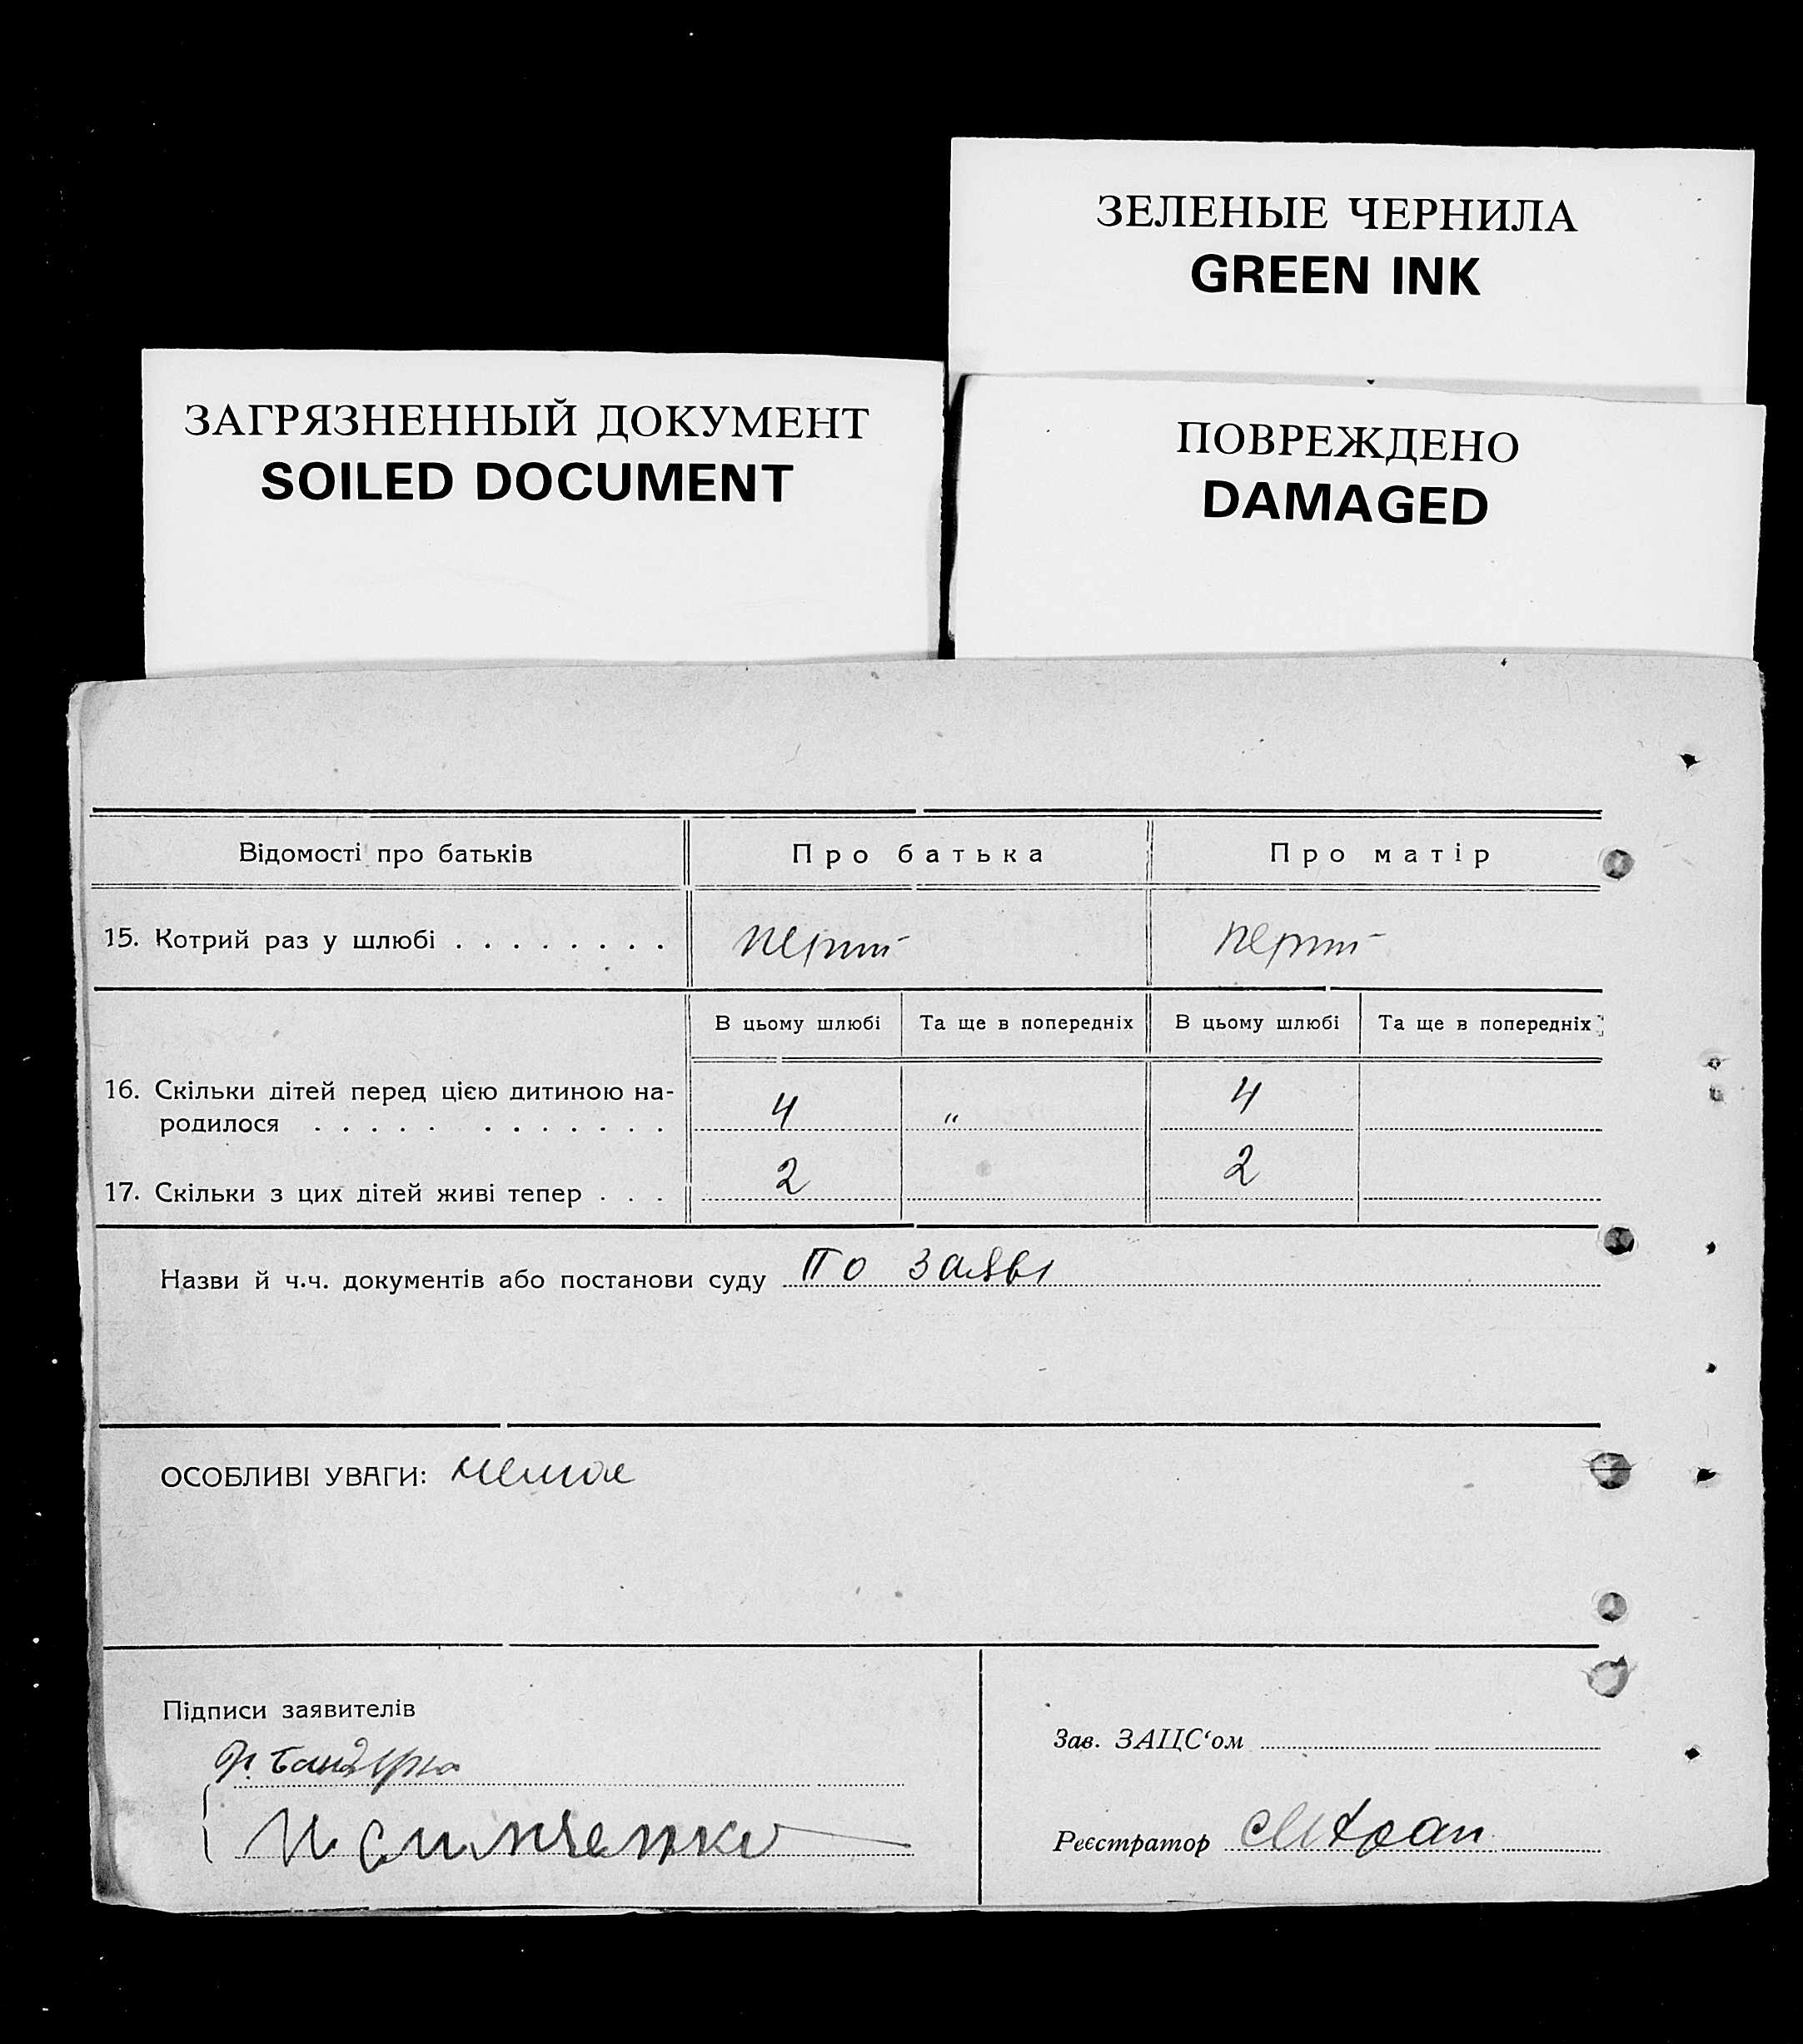 ЗЕЛЕНЫЕ ЧЕРНИЛА
GREEN INK
ЗАГРЯЗНЕННЫЙ ДОКУМЕНТ
SOILED DOCUMENT
ПОВРЕЖДЕНО
DAMAGED
Відомості про батьків Про батька Про матір
15. Котрий раз у шлюбі . . . . . . . . перший перший
В цьому шлюбі Та ще в попередніх В цьому шлюбі Та ще в попередніх
16. Скільки дітей перед цією дитиною на-
родилося . . . . . . . . . . . . 4 " 4
17. Скільки з цих дітей живі тепер . . . 2 2
Назви й ч.ч. документів або постанови суду По заяві
ОСОБЛИВІ УВАГИ: немає
Підписи заявителів
Зав. ЗАЦС‘ом
Реєстратор